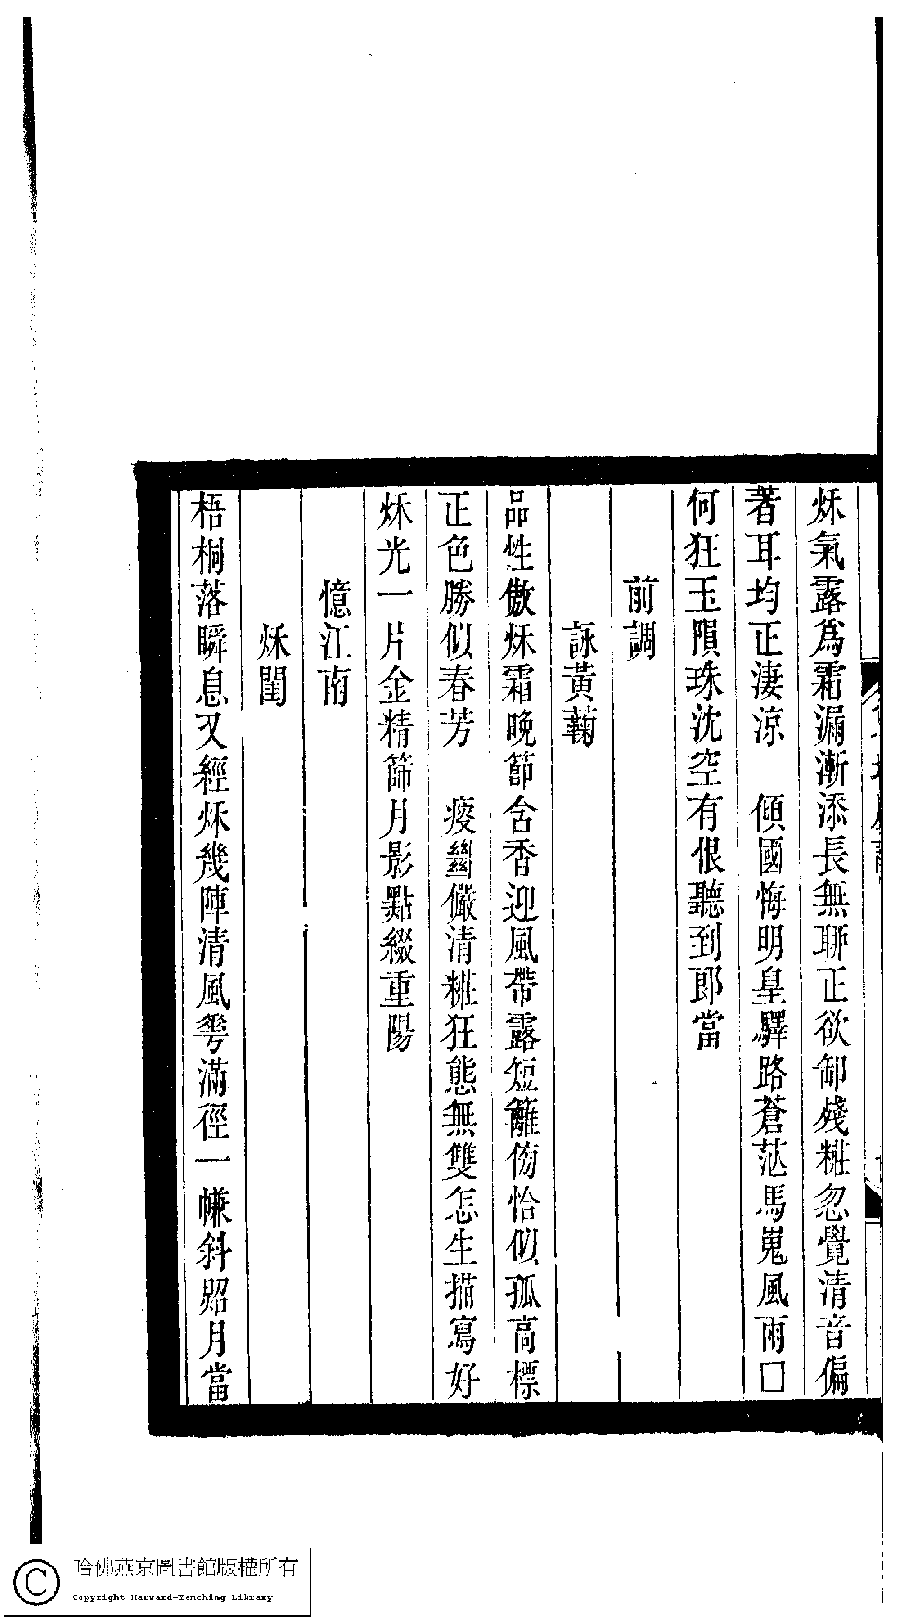 秌氣露爲霜漏漸添長無聊正欲卸殘糚忽覺清音偏
著耳均正淒涼　傾國悔明皇驛路蒼茫馬嵬風雨□
何狂玉隕珠沈空有恨聽到郎當
前調
詠黃鞠
品性傲秌霜晚節含香迎風帶露短籬傍恰似孤高標
正色勝似春芳　瘦幽儼清糚狂態無雙怎生描寫好
秌光一片金精篩月影點綴重陽
憶江南
秌閨
梧桐落瞬息又經秌幾陣清風雩滿徑一㡘斜照月當
哈佛燕京圖書館版權所有
Copyright Harvard-Yenching Library